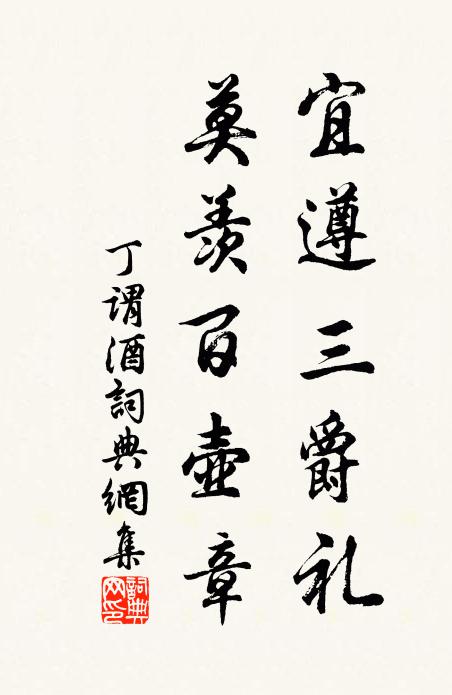 宜遵三爵礼
莫羡百壶章
丁谓酒詞典網集
詞典网印